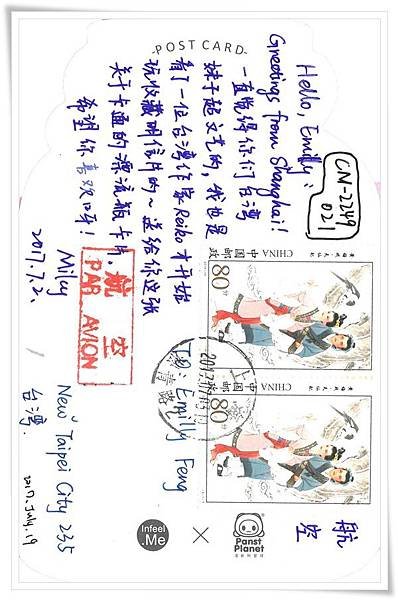 POST CARD
Hello, Emilly:
Greetings from Shanghai!
一直觉得你们台湾
妹子超文艺的,我也是
看了一位台湾作家Reiko才开始
玩收藏明信片的~送给你这张
关于卡通的漂流瓶卡片.
希望你喜欢口牙!
Mily
2017.7.2.
CN-2249
021
航空
PAR AVION
80分
中国邮政
CHINA
80分
中国邮政
CHINA
上海
To: Emilly Feng
New Taipei City 235
台湾.
2017.July.19
航空
Infeel
.Me
×
Panst
Planet